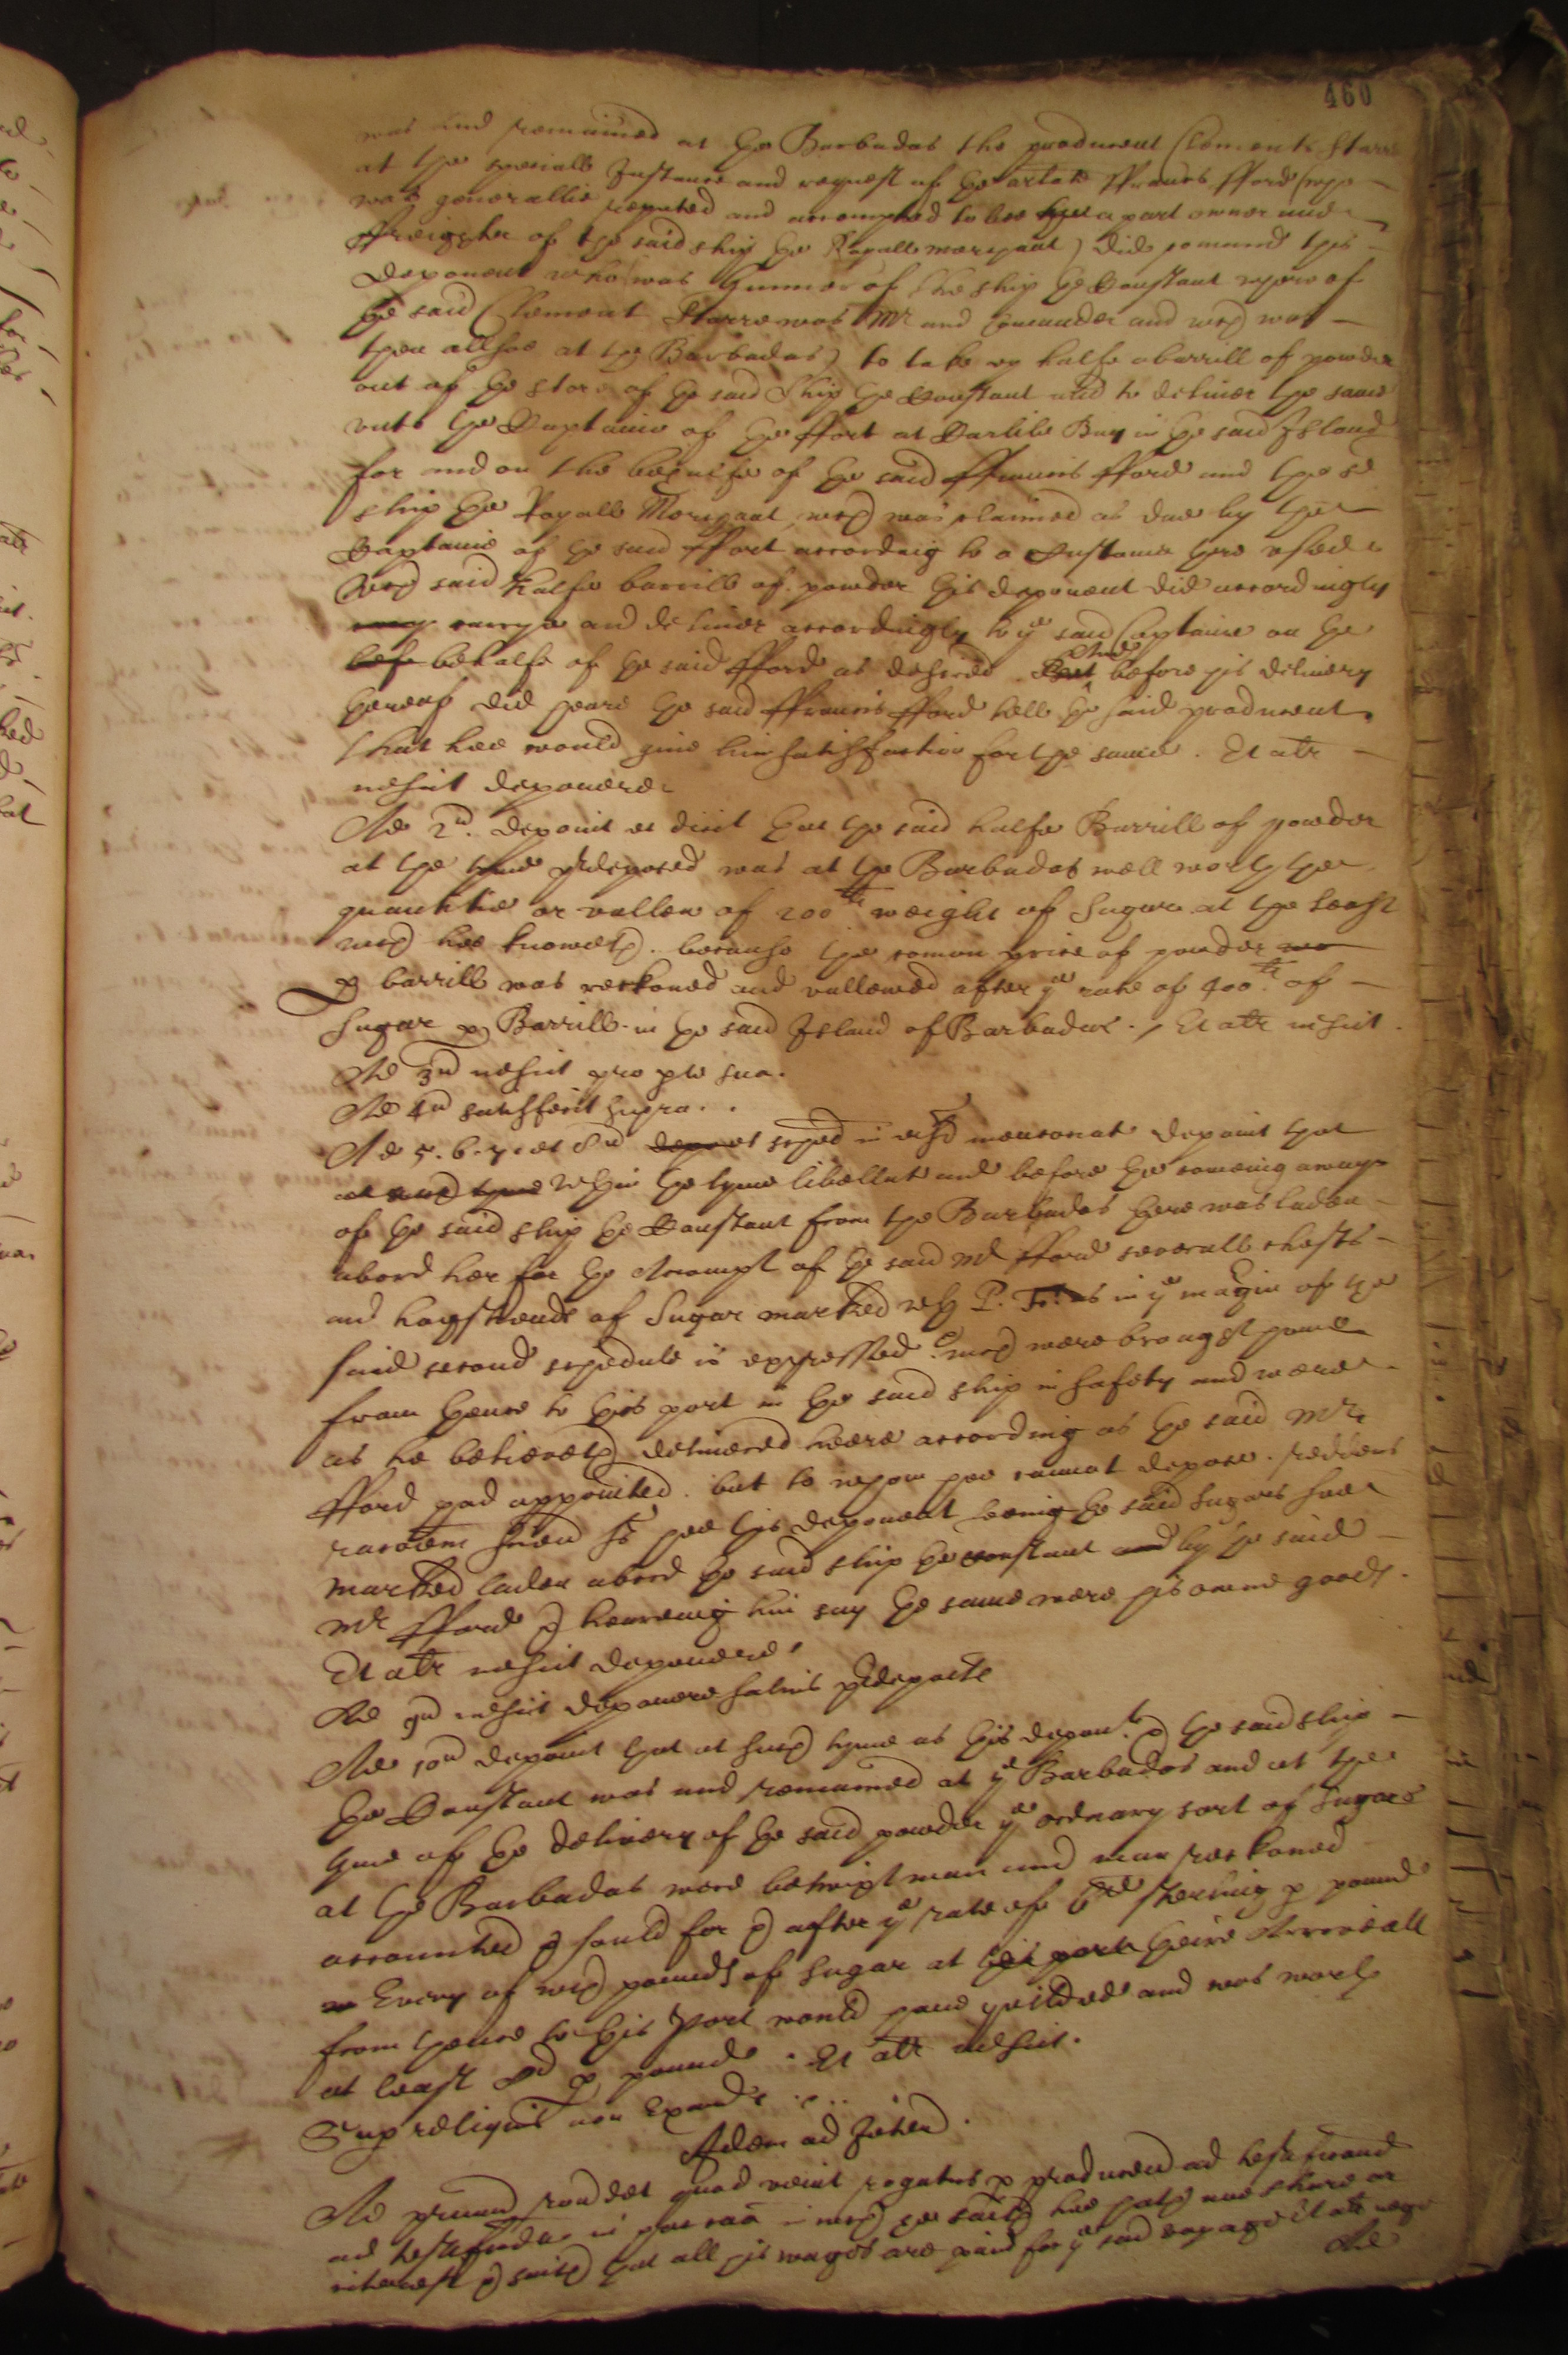 460
was and remained at the Barbadas the producent Clement Starre
at the speciall Instance and request of the arlate ffrancis fford (who
was generallie reputed and accompted to bee the a part owner and
ffreighter of the said ship the Royall merchant) did comand this
deponent who was Gunner of the ship the Constant whereof
the said Clement Starre was Mr and Comander and wch was
then allsoe at the Barbadas) to take up halfe a barrill of powder
out of the store of the said Ship the Constant and to deliver the same
unto the Captaine of the ffort at Carlile Bay in the said Island
for and on the behalfe of the said ffrancis fford and the sd
ship the Royall Merchant, wch was claimed as due by the
Captaine of the said ffort according to a Custome there used
wch said halfe barrill of powder this deponent did accordingly
carrye and deliver accordingly to ye said Captaine on the
befe behalfe of the said fford as desired. But And before his delivery
thereof did heare the said ffrancis fford tell the said producent
that hee would give him satisfaction for the same. Et atr
nescit deponere
Ad 2d. deponit et dicit that the said halfe Barrill of powder
at the tyme predeposed was at the Barbadas well worth the
quantitie or vallew of 200tt weight of Sugar at the least
wch hee knoweth. because the comon price of powder
p barrill was reckoned and vallewed after ye rate of 400tt of
Sugar p Barrill in the said Island of Barbadas. / Et atr nescit.
Ad 3d nescit pro pte sua.
Ad 4d satisfecit supra.
Ad 5. 6. 7. et 8d depo et sched in eisd mentionat deponit that
at such tyme Within the tyme libellate and before the comeing away
of the said ship the Constant from the Barbadas there was laden
abord her for the Accompt of the said Mr fford severall chests
and hogsheads of Sugar marked wth P. as in ye margin of the
said second schedule is expressed. wch were brought home
from thence to this port in the said ship in safety and were
as he believeth delivered heere according as the said Mr
fford had appointed. but to whom hee cannot depose. reddens
racoem sciae sd hee this deponent seeing the said Sugars soe
marked laden abord the said ship the Constant and by the said
Mr fford & heareing him say the same were his owne goods.
Et atr nescit deponere
Ad 9d nescit deponere salvis predeposte
Ad 10d deponit that at such tyme as this depont & the said ship
the Constant was and remained at ye Barbados and at the
tyme of the delivery of the said powder ye ordnary sort of Sugars
at the Barbadas were betwixt man and man reckoned
accounted & sould for & after ye rate of 6d sterling p pound
Every of wch pounds of Sugar at this port theire Arrivall
from thence to this Port would have yeilded and was worth
at least 8d p pound. Et atr nescit.
Sup reliquis non Exandr
Idem ad Interr.
Ad primum rondet quod venit rogatus p producen ad testificand
ad testificandu in hac caa in wch he saith hee hath noe share or
interest & saith that all his wages are paid for ye said voyage Et atr nege
Ad